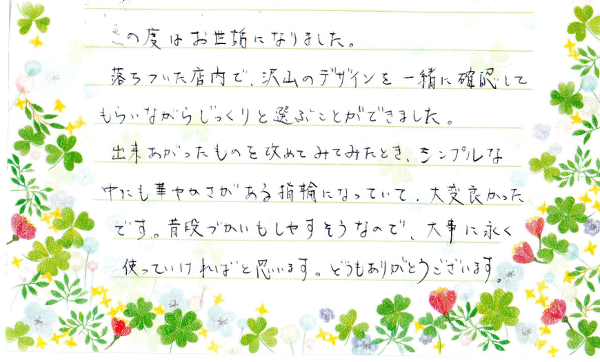 この度はお世話になりました。
落ちついた店内で、沢山のデザインを一緒に確認して
もらいながらじっくりと選ぶことができました。
出来あがったものを改めてみてみたとき、シンプルな
中にも華やかさがある指輪になっていて、大変良かった
です。普段づかいもしやすそうなので、大事に永く
使っていければと思います。どうもありがとうございます。